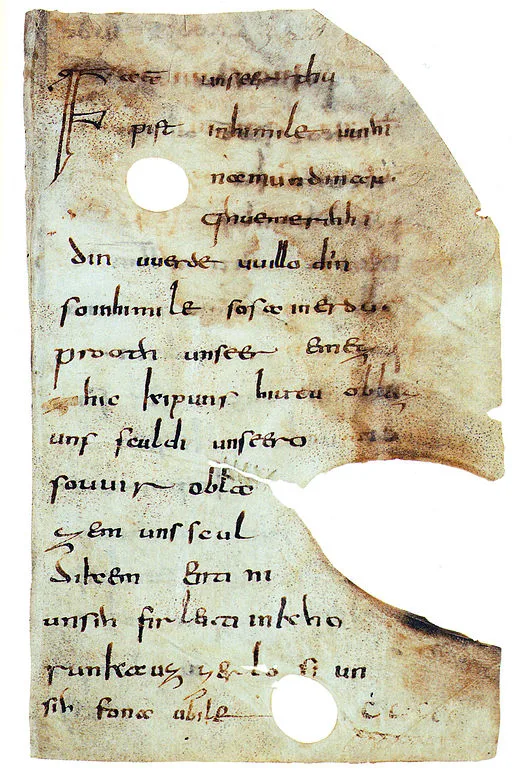 Fater unseer thu
pist inhimile uuihi
namun dinan
qhueme rihhi
din uuerde uuillo diin
so inhimile sosa in erdu
prooth unseer emez
zihic kip uns hiutu oblaz
uns sculdi unseero
so uuir obla
zem uns scul
dikem enti ni
unsih firleiti in kho
runka uz zer lo si un
sih fona ubile